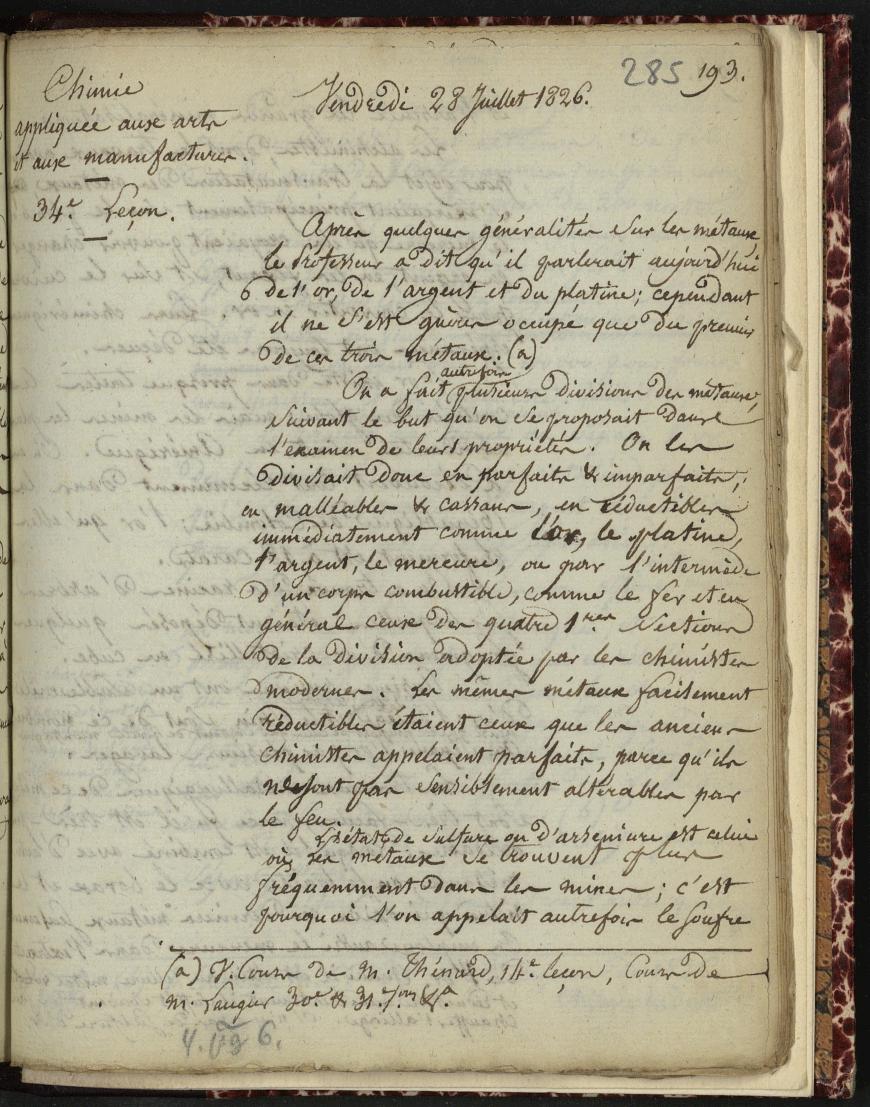 285 193.
Chimie
appliquée aux arts
et aux manufactures.
34.e Leçon.
Vendredi 28 Juillet 1826.
Après quelques généralités sur les métaux,
le Professeur a dit qu'il parlerait aujourd'hui
de l'or, de l'argent et du platine; cependant
il ne s'est guères occupé que du premier
de ces trois métaux. (a)
autrefois
On a fait plusieurs divisions des métaux,
suivant le but qu'on se proposait dans
l'examen de leurs propriétés. On les
divisait donc en parfaits & imparfaits;
en malléables & cassans, en réductibles
immédiatement comme l'or, le platine,
l'argent, le mercure, ou par l'intermède
d'un corps combustible, comme le fer et en
général ceux des quatre 1.res Sections
de la Division adoptée par les chimistes
modernes. Les mêmes métaux facilement
réductibles étaient ceux que les anciens
chimistes appelaient parfaits, parce qu'ils
ne sont pas sensiblement altérables par
le feu.
L'état de sulfure ou d'arseniure est celui
où les métaux se trouvent plus
fréquemment dans les mines; c'est
pourquoi l'on appelait autrefois le soufre
(a) V. Cours de M. Thénard, 14.e leçon, Cours de
M. Laugier 30.e & 31.e &.a